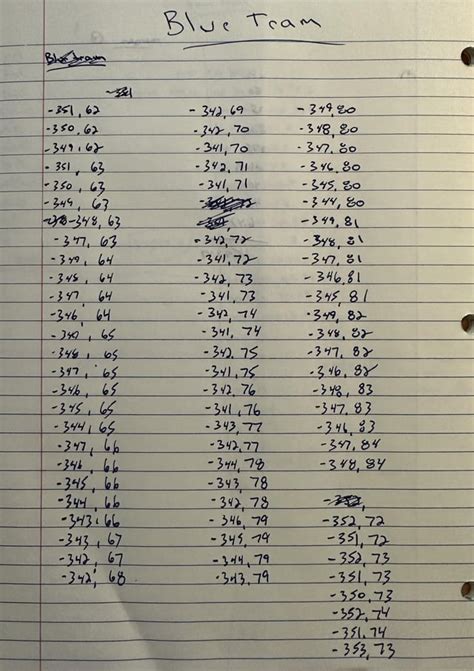 Blue Team
-351, 62
-350, 62
-349, 62
-351, 63
-350, 63
-349, 63
-348, 63
-347, 63
-349, 64
-348, 64
-347, 64
-346, 64
-349, 65
-348, 65
-347, 65
-346, 65
-345, 65
-344, 65
-347, 66
-346, 66
-345, 66
-344, 66
-343, 66
-343, 67
-342, 67
-342, 68
-342, 69
-342, 70
-341, 70
-342, 71
-341, 71
-342, 72
-341, 72
-342, 73
-341, 73
-342, 74
-341, 74
-342, 75
-341, 75
-342, 76
-341, 76
-343, 77
-342, 77
-344, 78
-343, 78
-342, 78
-346, 79
-345, 79
-344, 79
-343, 79
-349, 80
-348, 80
-347, 80
-346, 80
-345, 80
-344, 80
-349, 81
-348, 81
-347, 81
-346, 81
-345, 81
-349, 82
-348, 82
-347, 82
-346, 82
-348, 83
-347, 83
-346, 83
-347, 84
-348, 84
-352, 72
-351, 72
-352, 73
-351, 73
-350, 73
-352, 74
-351, 74
-353, 73